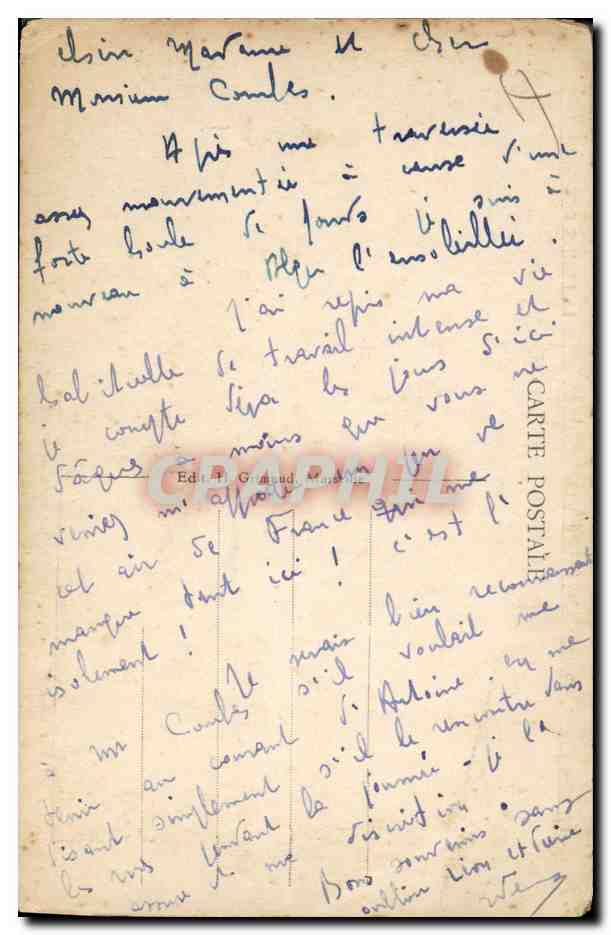 Chère Madame et Cher
Monsieur Combes.
Après une traversée
assez mouvementée à cause d'une
forte houle de fonds je suis à
nouveau à Alger l'ensoleillée.
J'ai repris ma vie
habituelle de travail intense et
je compte déjà les jours d'ici
Pâques à moins que vous ne
veniez m'apporter un peu de
cet air de France qui me
manque tant ici ! c'est l'
isolement !
Je serais bien reconnaissant
à Mr Combes s'il voulait me
tenir au courant d'Antoine en me
disant simplement s'il le rencontre dans
les rues pendant la journée - je l'
assure de ma discrétion.
Bons souvenirs sans
oublier
CARTE POSTALE
Edit. H. Grimaud, Marseille
CRAPHIL